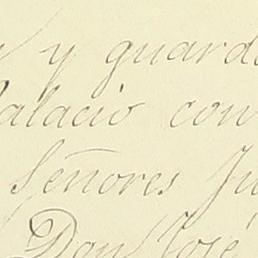 y guard
Palacio con
Señores Ju
Don José